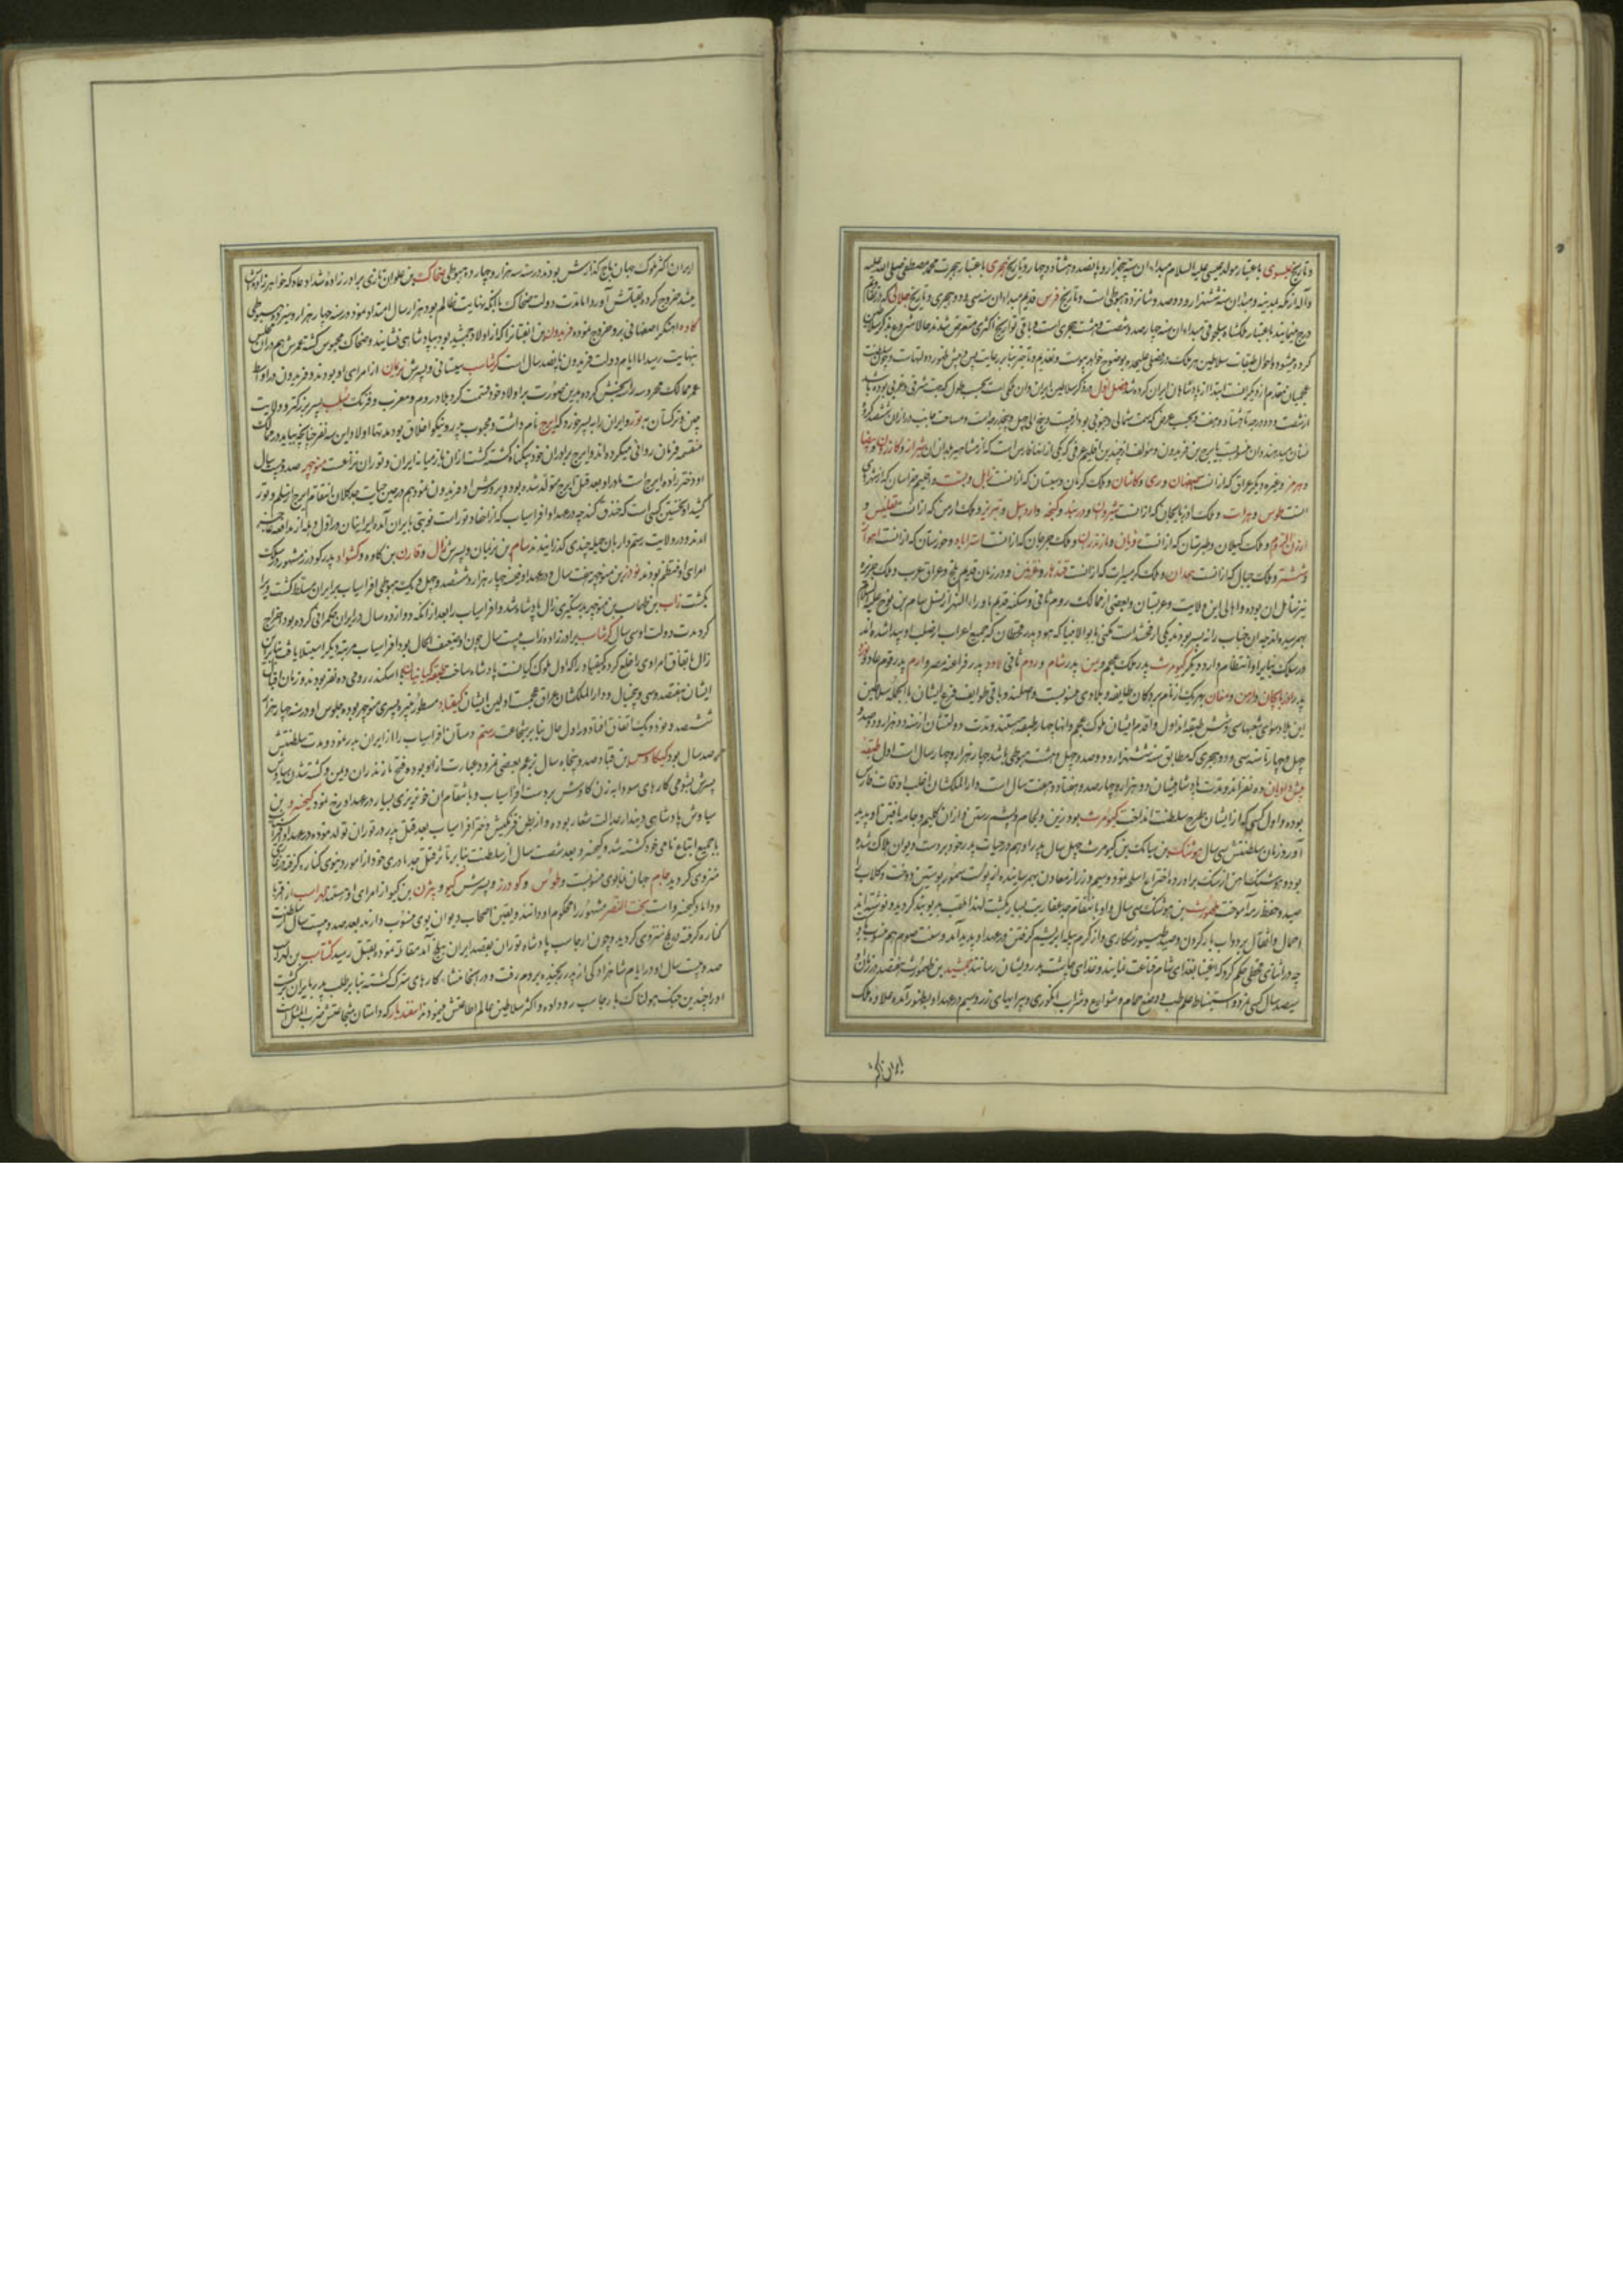 و تاریخ عیسوی باعتبار مولد عیسی علیه السلام مبداء ان سنه پنجهزار و پانصد و هشتاد و چهار و تاریخ هجری باعتبار هجرت محمد مصطفی صلی الله علیه
و آله از مکه بمدینه و مبداء ان سنه ششهزار و دوصد و شانزده هبوطی است و تاریخ فرس قدیم مبداء ان سنه سی و دو هجری و تاریخ جلالی که در تقاویم
درج مینمایند باعتبار ملکشاه سلجوقی مبداء ان سنه چهار صد و شصت و هشت هجری است و باقی تواریخ اکثری متعرض نشدند حالا شروع بذکر سلاطین
کرده میشود و احوال طبقات سلاطین هر ملک در فصلی علیحده بوضوح خواهد پیوست و تقدیم و تاخیر بنابر رعایت پس و پیش ظهور دولتهاست و چون سلطنت
عجمیان متقدم از دیگر است ابتدا از پادشاهان ایران کرده شد فصل اول در ذکر سلاطین ایران و ان ملکی است بحسب طول که جهت شرقی و غربی بوده باشد
از شصت و دو درجه تا هشتاد و هفت و بحسب عرض که سمت شمالی و جنوبی بود از بیست و پنج الی چهل و پنج درجه است و مساحت
نشان میدهند و ان منسوب بایرج بن فریدون و مولف از چندین اقلیم عرفی که یکی از انها فارس است که از مشاهیر بلدان ان شیراز و کازرون و بیضا
و هرمز و غیره دیگر عراق که از انست صفهان و ری و کاشان و ملک کرمان و سیستان که از انست زابل و بست و اقلیم خراسان که از شهرهای
انست طوس و هرات و ملک اذربایجان که از انست شروان و دربند و کنجه و اردبیل و تبریز و ملک ارمن که از انست تفلیس و
ارزن الروم و ملک کیلان و طبرستان که از انست و مازندران و ملک جرجان که از انست استراباد و خوزستان که از انست اهواز
و ششتر و ملک جبال که از انست همدان و ملک گرمسیرات که از انست قندهار و غزنین و در زمان قدیم بلخ و عراق عرب و ملک جزیره
نیز شامل ان بوده و اهالی این ولایت و عربستان و بعضی از ممالک روم ثانی و سکنه قدیم ماوراء النهر از نسل سام بن نوح علیه السلام
بهم رسیده اند چه ان جناب را نه پسر بودند یکی ارفخشد است مکنی بابو الانبیا که هود پدر قحطان که جمیع اعراب از صلب او پیدا شده اند
در سلک بنایر او انتظام دارد و دیگر کیومرث پدر ملک عجم و یمن پدر شام و روم ثانی لاود پدر فراعنه مصر و ارم پدر قوم عاد و
پدر اذربایجان و ارمن و مغان
این بلاد
چهل و چهار تا سنه سی و دو هجری که مطابق سنه ششهزار و دوصد و چهل و هشت هبوطی باشد چهار هزار و چهار سال است اول طبقه
پیشدادیان ده نفر اند و مدت پادشاهیشان دو هزار و چهار صد و هفتاد و هفت سال است دار الملکشان اغلب اوقات فارس
بوده و اول کسی که از ایشان طرح سلطنت انداخت کیومرث بود زین و لجام و پشم رشتن و از ان کلیم و جامه بافتن او پدید
آورد زمان سلطنتش سی سال هوشنک بن سیامک بن کیومرث چهل سال پدر او هم در حیات پدر خود بر دست دیوان هلاک شده
بود و هوشنک اهن از سنک براورد و اختراع اسلحه نمود و سیم و زر از معادن بهم رسانیده از پوست سمور پوستین دوخت و کلاب را
صید و حفظ رمه آموخت طهمورث بن هوشنک سی سال و او بانتقام جد عفاریت بسیار بکشت لهذا ملقب بدیو بند کردید و نوشته اند
احمال و اثقال بر دواب بار کردن و صید طیور شکاری و از کرم پیله ابریشم کرفتن در عهد او پدید آمد و سنت صوم هم منسوب باو
چه در اثنای قحطی حکم کرد که اغنیا بغذای شام قناعت نمایند و غذای چاشت بدرویشان رسانند جمشید بن طهمورث هفتصد و در زمان
سیصد سال کسی نمرد و استنباط علم طب و وضع حمام و شوارع و شراب انکوری و پیرایهای زر و سیم در عهد او بظهور آمده علاوه ملک
ایران اکثر
ایران اکثر ملوک جهان باج کذارش بودند در سنه سه هزار و چهار ده هبوطی ضحاک بن علوان تازی برادر زاده شداد عاد که خواهر زاده
جمشید بود خروج کرده بقتلش آورد اما مدت دولت ضحاک با آنکه بنهایت ظالم بود هزار سال امتداد نمود در سنه چهار هزار و سیزده هبوطی
کاوه اهنکر اصفهانی بر و خروج نموده فریدون بن اتفیان را که از اولاد جمشید بود بپادشاهی نشانید و ضحاک محبوس کشته عمرش هم در ان حبس
بنهایت رسید اما ایام دولت فریدون پانصد سال است کرشاسب سیستانی و پسرش نریمان از امرای او بودند و فریدون در اواسط
عمر ممالک محروسه را بخش کرده بدین صورت بر اولاد خود قسمت کرد بلاد روم و مغرب و فرنک سلم پسر بزرکتر و ولایت
چین و ترکستان به تور و ایران را به پسر خورد که ایرج نام داشت و محبوب پدر و نیکو اخلاق بود
منقسمه فرمان روائی میکرده اند و ایرج بر دست برادران خود بیکناه کشته کشت از ان باز میانه ایران و توران نزاعست منوچهر صد و بیست سال
او دختر زاده ایرج است مادر او بعد قتل ایرج متولد شده بود و پرورش او فریدون نمود هم در حین حیات جد کلان انتقام ایرج از سلم و تور
کشید او نخستین کسی است که خندق کند چه در عهد او افراسیاب که از احفاد تور است نوبتی بایران آمده
امدند و در ولایت رستمدار بان حیله چندی کذرانیدند سام بن نریمان و پسرش زال و قارن بن کاوه و کشواد پدر کودرز مشهور در سلک
امرای او منتظم بودند نوذر بن منوچهر هفت سال و در عهد او فتنه چهار هزار و ششصد و چهل و یک هبوطی افراسیاب بر ایران مسلط کشت و را
بکشت زاب بن طهماسب بن منوچهر بدستکیری زال پادشاه شد و افراسیاب را بعد از انکه دوازده سال در ایران حکمرانی کرده بود اخراج
کرد مدت دولت او سی سال کرشاسب برادر زاده زاب بیست سال چون او ضعیف الحال بود افراسیاب مرتبه دیکر استیلا یافت بنابرین
زال باتفاق امرا او را خلع کرد و کیقباد را که اول ملوک کیانست پادشاه ساخت طبقه کیانیان با اسکندر رومی ده نفر بودند و زمان اقبال
ایشان هفتصد و سی و پنج سال و دار الملکشان عراق عجمست اولین ایشان کیقباد مسطور نبیره پسری منوچهر بوده جلوس او در سنه چهار هزار
ششصد و نود و یک اتفاق افتاد و در اول حال بنابر شجاعت رستم دستان افراسیاب را از ایران بدر نمود و مدت سلطنتش
صد سال بود کیکاوس بن قباد صد و پنجاه سال نزعم بعضی نمرود عبارت از او بوده فتح مازندران و یمن و کشته شدن سیاوش
پسرش بشومی کارهای سودابه زن کاوس بر دست افراسیاب و بانتقام ان خونریزی بسیار در عهد او رخ نمود کیخسرو بن
سیاوش پادشاهی دیندار عدالت شعار بوده و از بطن فرنکیس دختر افراسیاب بعد قتل پدر در توران تولد نموده در عهد او افراسیاب
با جمیع اتباع نامی خود کشته شد و کیخسرو بعد شصت سال از سلطنت بنابر تاثر قتل جد مادری خود از امور دنیوی کناره کرفته در
منزوی کردید جام جهان نما بوی منسوبست و طوس و کودرز و پسرش کیو و بیژن بن کیو از امرای او هستند لهراسب از اقربا
و داماد کیخسرو است بخت النصر مشهور را محکوم او دانند و بعضی اصحاب دیوان بوی منسوب دارند بعد صد و بیست سال از سلطنت
کناره کرفته در بلخ منزوی کردید و چون ارجاسب پادشاه توران بقصد ایران ببلخ آمد مقاتله نموده بقتل رسید کشتاسب بن لهراسب
صد و بیست سال او در ایام شاهزادکی از پدر رنجیده بروم رفت و در انجا منشاء کارهای سترک کشته بنابر طلب پدر بایران برکشت
او را چندین جنک هولناک با ارجاسب رو داده و اکثر سلاطین عالم اطاعتش مینمودند اسفندیار که داستان شجاعتش ضرب المثل است